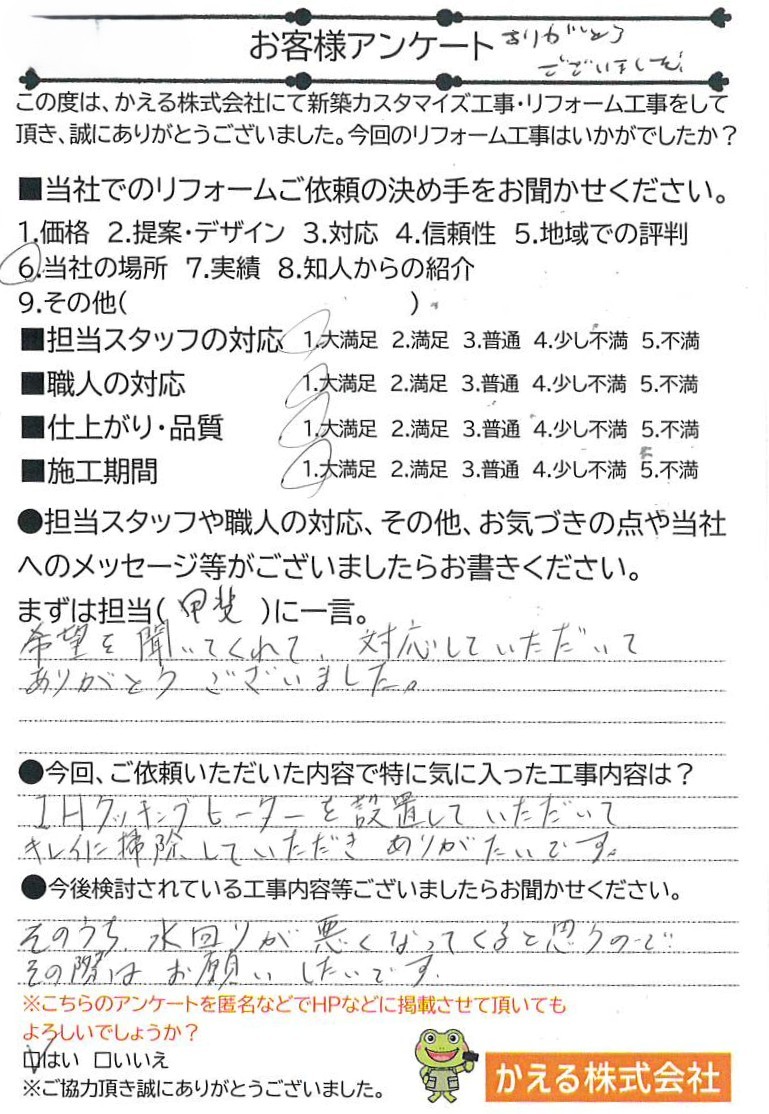 お客様アンケート ありがとう
ございました!
この度は、かえる株式会社にて新築カスタマイズ工事・リフォーム工事をして
頂き、誠にありがとうございました。今回のリフォーム工事はいかがでしたか？
■当社でのリフォームご依頼の決め手をお聞かせください。
1.価格 2.提案・デザイン 3.対応 4.信頼性 5.地域での評判
6.当社の場所 7.実績 8.知人からの紹介
9.その他( )
■担当スタッフの対応 1.大満足 2.満足 3.普通 4.少し不満 5.不満
■職人の対応 1.大満足 2.満足 3.普通 4.少し不満 5.不満
■仕上がり・品質 1.大満足 2.満足 3.普通 4.少し不満 5.不満
■施工期間 1.大満足 2.満足 3.普通 4.少し不満 5.不満
●担当スタッフや職人の対応、その他、お気づきの点や当社
へのメッセージ等がございましたらお書きください。
まずは担当(甲斐)に一言。
希望を聞いてくれて、対応していただいて
ありがとうございました。
●今回、ご依頼いただいた内容で特に気に入った工事内容は？
IHクッキングヒーターを設置していただいて
キレイに掃除していただきありがたいです。
●今後検討されている工事内容等ございましたらお聞かせください。
そのうち水回りが悪くなってくると思うので
その際はお願いしたいです。
※こちらのアンケートを匿名などでHPなどに掲載させて頂いても
よろしいでしょうか？
☑はい □いいえ
※ご協力頂き誠にありがとうございました。
かえる株式会社